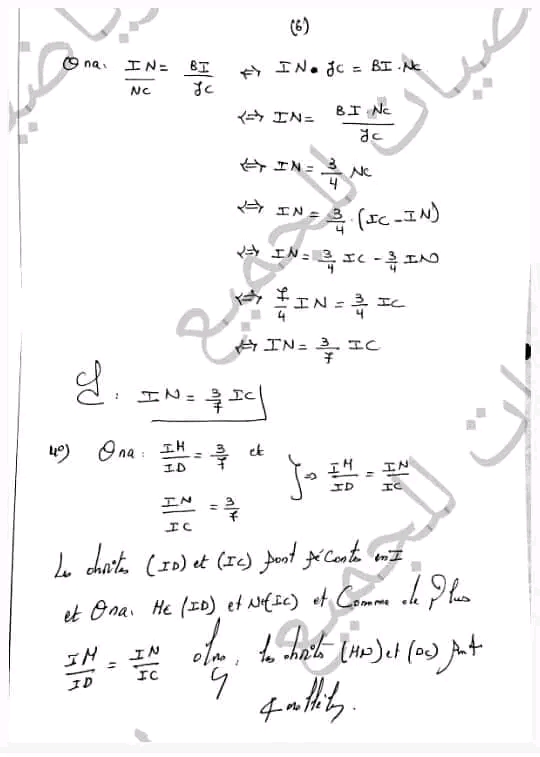 (6)
On a: IN/NC = BI/JC ⇔ IN • JC = BI . NC
⇔ IN = BI . NC / JC
⇔ IN = 3/4 NC
⇔ IN = 3/4 . (IC - IN)
⇔ IN = 3/4 IC - 3/4 IN
⇔ 7/4 IN = 3/4 IC
⇔ IN = 3/7 IC
: IN = 3/7 IC
4°) On a: IM/ID = 3/7 et
IN/IC = 3/7 } ⇒ IM/ID = IN/IC
Les droites (ID) et (IC) sont sécantes en I
et On a: M∈(ID) et N∈(IC) et Comme de Plus
IM/ID = IN/IC alors, les droites (MN) et (DC) sont
parallèles.
للجميع
للجميع